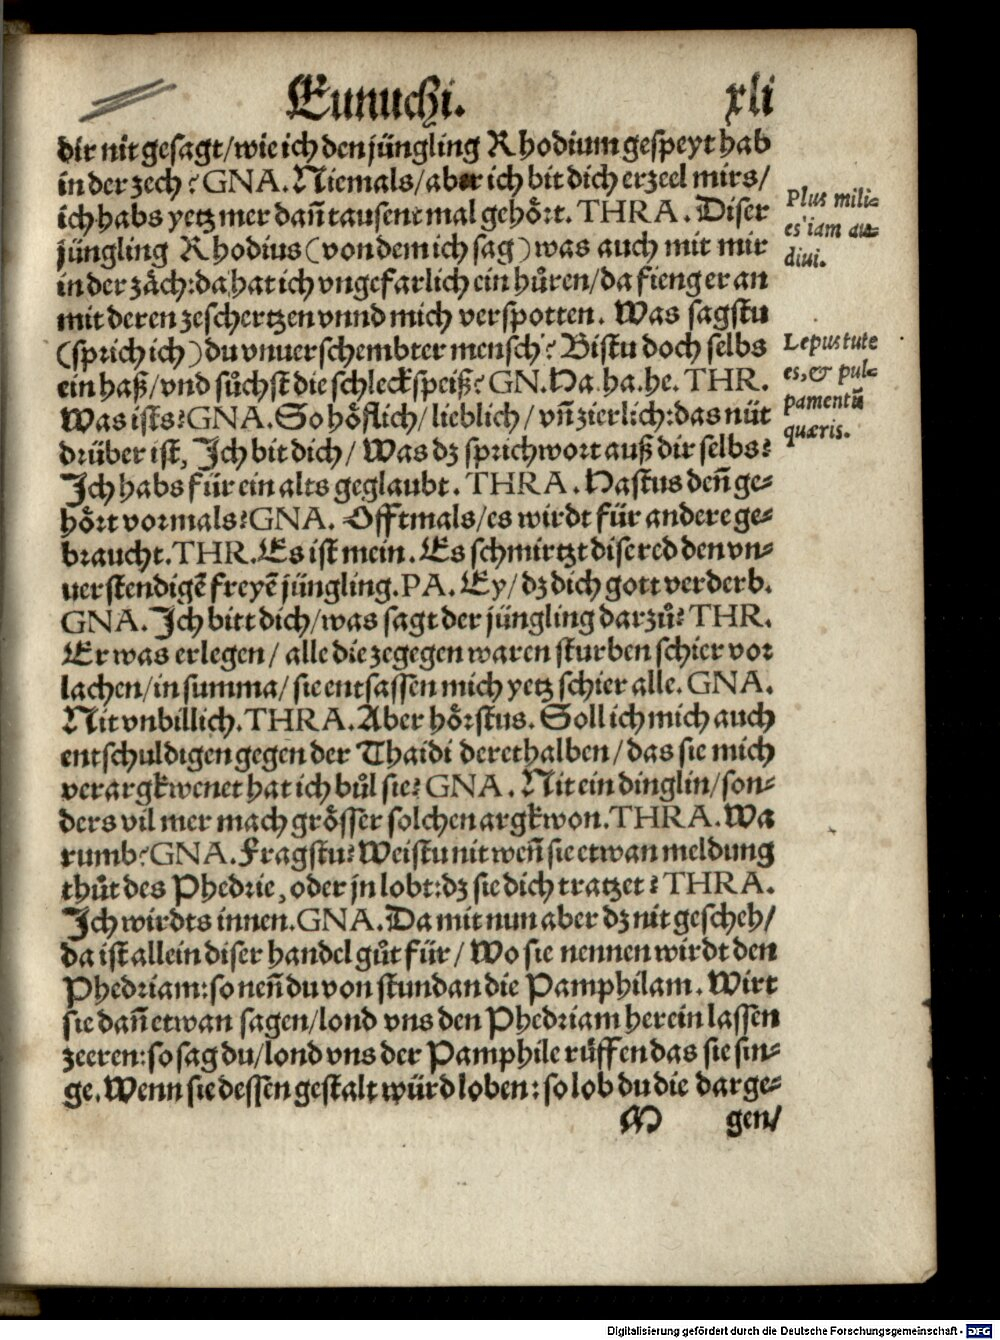 Eunuchi. xli
dir nit gesagt/wie ich den jüngling Rhodium gespeyt hab
in der zech? GNA. Niemals/aber ich bit dich erzeel mirs/
ich habs yetz mer dañ tausent mal gehoͤrt. THRA. Diser
jüngling Rhodius (von dem ich sag) was auch mit mir
in der zaͤch: da hat ich vngefarlich ein huͤren/da fieng er an
mit deren zeschertzen vnnd mich verspotten. Was sagstu
(sprich ich) du vnuerschembter mensch? Bistu doch selbs
ein haß/vnd suͦchst die schleckspeiß? GN. Ha. ha. he. THR.
Was ists? GNA. So hoͤflich/lieblich/vñ zierlich: das nüt
drüber ist, Ich bit dich/Was dz sprichwort auß dir selbs?
Ich habs für ein alts geglaubt. THRA. Hastus deñ ge=
hoͤrt vormals? GNA. Offtmals/es wirdt für andere ge=
braucht. THR. Es ist mein. Es schmirtzt dise red den vn=
uerstendigẽ freyẽ jüngling. PA. Ey/dz dich gott verderb.
GNA. Ich bitt dich/was sagt der jüngling darzuͦ? THR.
Er was erlegen/alle die zegegen waren sturben schier vor
lachen/in summa/sie entsassen mich yetz schier alle. GNA.
Nit vnbillich. THRA. Aber hoͤrstus. Soll ich mich auch
entschuldigen gegen der Thaidi derethalben/das sie mich
verargkwenet hat ich buͦl sie? GNA. Nit ein dinglin/son=
ders vil mer mach groͤsser solchen argkwon. THRA. Wa
rumb? GNA. Fragstu? Weistu nit weñ sie etwan meldung
thuͦt des Phedrie, oder jn lobt: dz sie dich tratzet? THRA.
Ich wirdts innen. GNA. Da mit nun aber dz nit gescheh/
da ist allein diser handel guͦt für/Wo sie nennen wirdt den
Phedriam: so neñ du von stundan die Pamphilam. Wirt
sie dañ etwan sagen/lond vns den Phedriam herein lassen
zeeren: so sag du/lond vns der Pamphile ruͤffen das sie sin=
ge. Wenn sie dessen gestalt würd loben: so lob du die darge=
M gen/
Plus mili=
es iam au=
diui.
Lepus tute
es, & pul=
pamentũ
quæris.
Digitalisierung gefördert durch die Deutsche Forschungsgemeinschaft - DFG